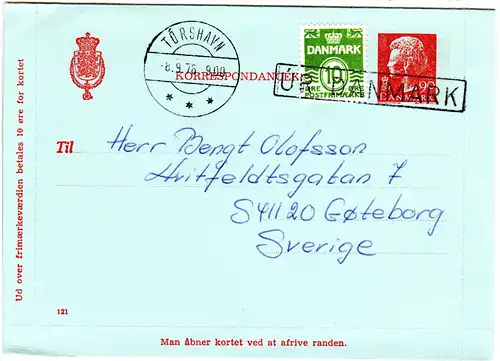 TÓRSHAVN
-8.9.76. 9.00
DANMARK
10
ØRE ØRE
POSTFRIMÆRKE
90
DANMARK
KORRESPONDANCEK
ÚR DANMARK
Til
Herr Bengt Olofsson
Hvitfeldtsgatan 7
S41120 Gøteborg
Sverige
121
Man åbner kortet ved at afrive randen.
Ud over frimærkeværdien betales 10 øre for kortet